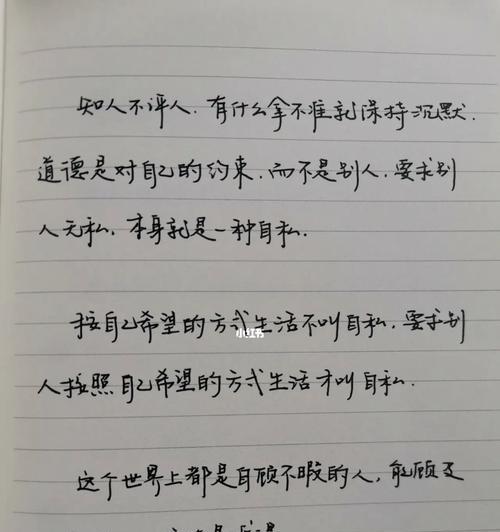 知人不评人.有什么拿不准就保持沉默.
道德是对自己的约束.而不是别人.要求别
人无私.本身就是一种自私.
按自己希望的方式生活不叫自私.要求别
小红书
人按照自己希望的方式生活才叫自私.
这个世界上都是自顾不暇的人,能顾及